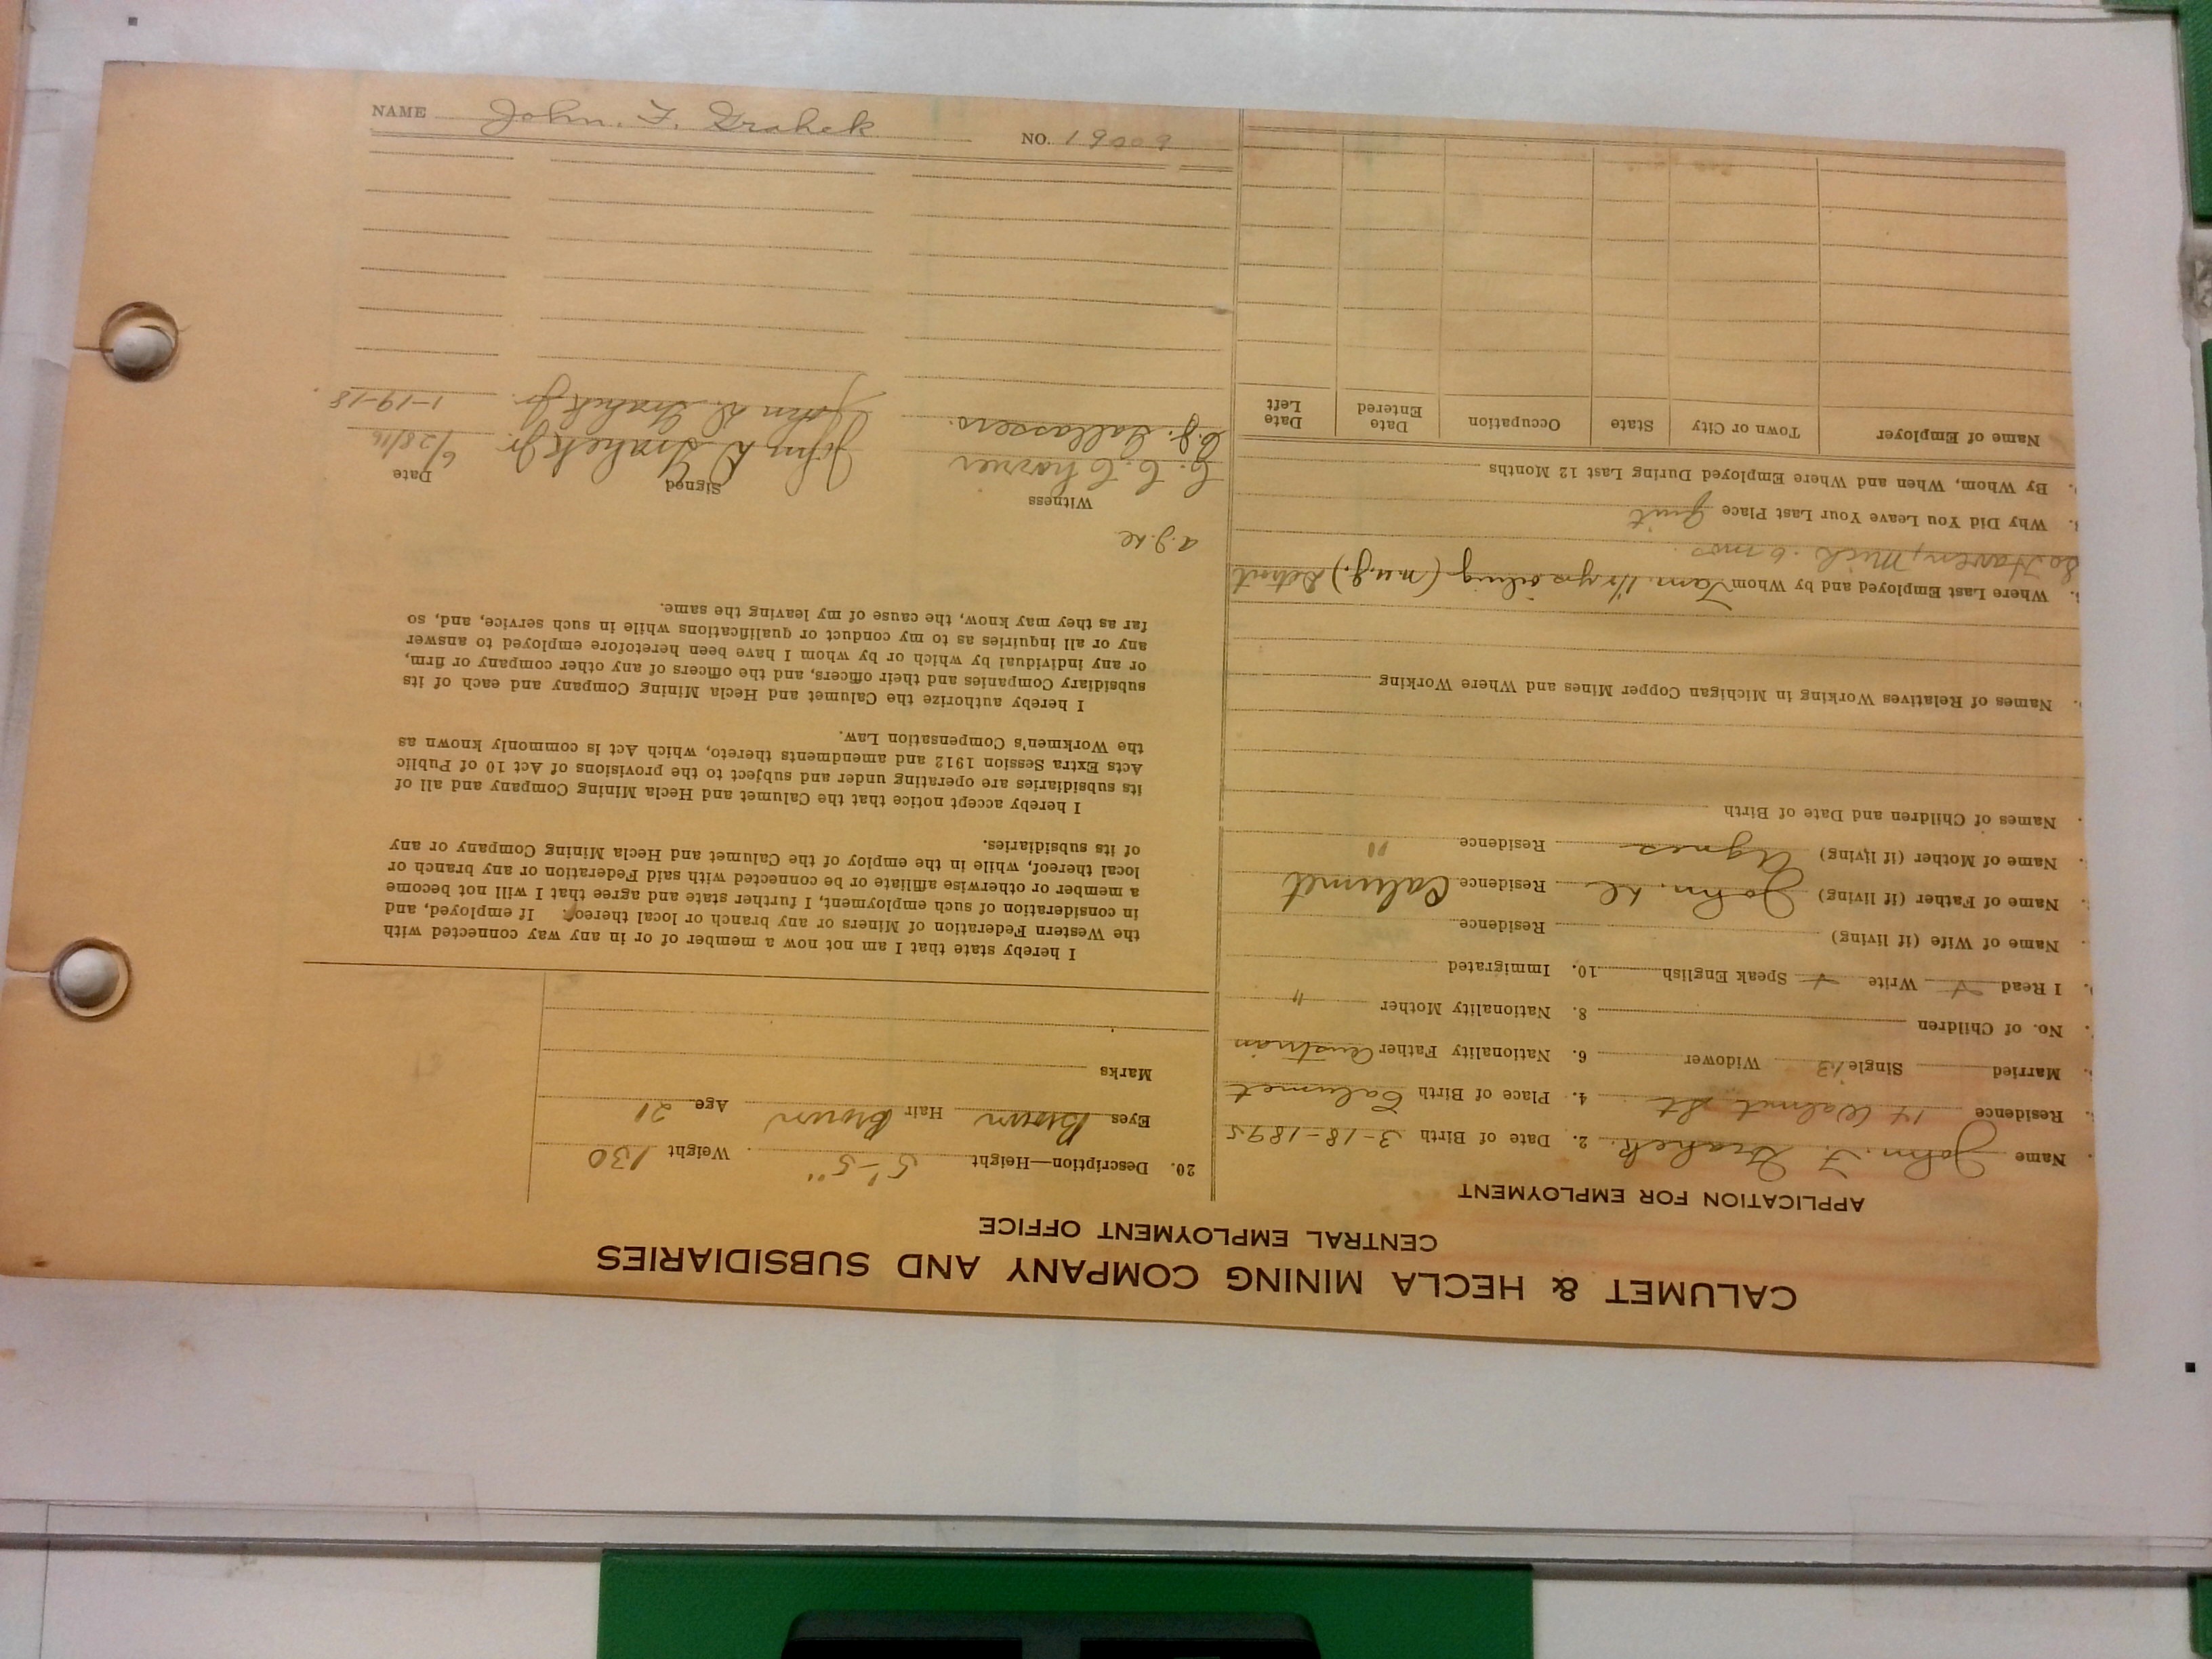 CALUMET & HECLA MINING COMPANY AND SUBSIDIARIES
CENTRAL EMPLOYMENT OFFICE
APPLICATION FOR EMPLOYMENT
Name John. F. Grahek. 2. Date of Birth 3-18-1895
Residence 14 Walnut St 4. Place of Birth Calumet
Married Single 13 Widower 6. Nationality Father Austrian
No. of Children 8. Nationality Mother "
I Read + Write + Speak English 10. Immigrated
Name of Wife (if living) Residence
Name of Father (if living) John. Residence Calumet
Name of Mother (if living) Agnes Residence "
Names of Children and Date of Birth
Names of Relatives Working in Michigan Copper Mines and Where Working
Where Last Employed and by Whom Tam. 1½ yrs oiling (m.u.g.) Detroit
So Haven, Mich. 6 mos.
Why Did You Leave Your Last Place quit
By Whom, When and Where Employed During Last 12 Months
Name of Employer Town or City State Occupation Date Entered Date Left
20. Description—Height 5'-5" Weight 130
Eyes Brown Hair Brown Age 21
Marks
I hereby state that I am not now a member of or in any way connected with
the Western Federation of Miners or any branch or local thereof. If employed, and
in consideration of such employment, I further state and agree that I will not become
a member or otherwise affiliate or be connected with said Federation or any branch or
local thereof, while in the employ of the Calumet and Hecla Mining Company or any
of its subsidiaries.
I hereby accept notice that the Calumet and Hecla Mining Company and all of
its subsidiaries are operating under and subject to the provisions of Act 10 of Public
Acts Extra Session 1912 and amendments thereto, which Act is commonly known as
the Workmen's Compensation Law.
I hereby authorize the Calumet and Hecla Mining Company and each of its
subsidiary Companies and their officers, and the officers of any other company or firm,
or any individual by which or by whom I have been heretofore employed to answer
any or all inquiries as to my conduct or qualifications while in such service, and, so
far as they may know, the cause of my leaving the same.
Witness Signed Date
John Grahek Jr. 6/28/16
John Grahek Jr. 1-19-18
NAME John. F. Grahek NO. 19009